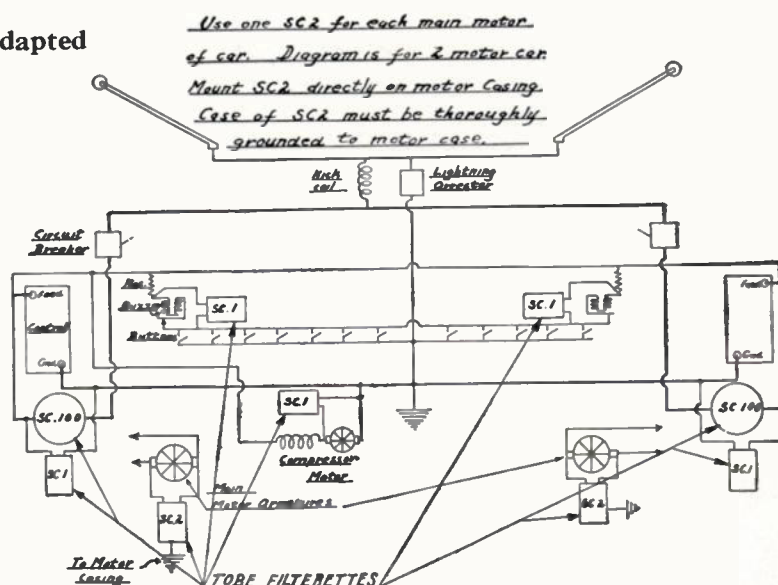 dapted
Use one SC2 for each main motor
of car. Diagram is for 2 motor car.
Mount SC2 directly on motor Casing.
Case of SC2 must be thoroughly
grounded to motor case.
Kick
coil
Lightning
Arrestor
Circuit
Breaker
Feed
Control
Gnd.
Res.
Buzzer
Buttons
SC.1
SC.1
Feed
Gnd.
SC.100
SC1
SC.1
Compressor
Motor
SC 100
SC1
Main
Motor Armatures
SC2
SC2
To Motor
Casing
TOBE FILTERETTES